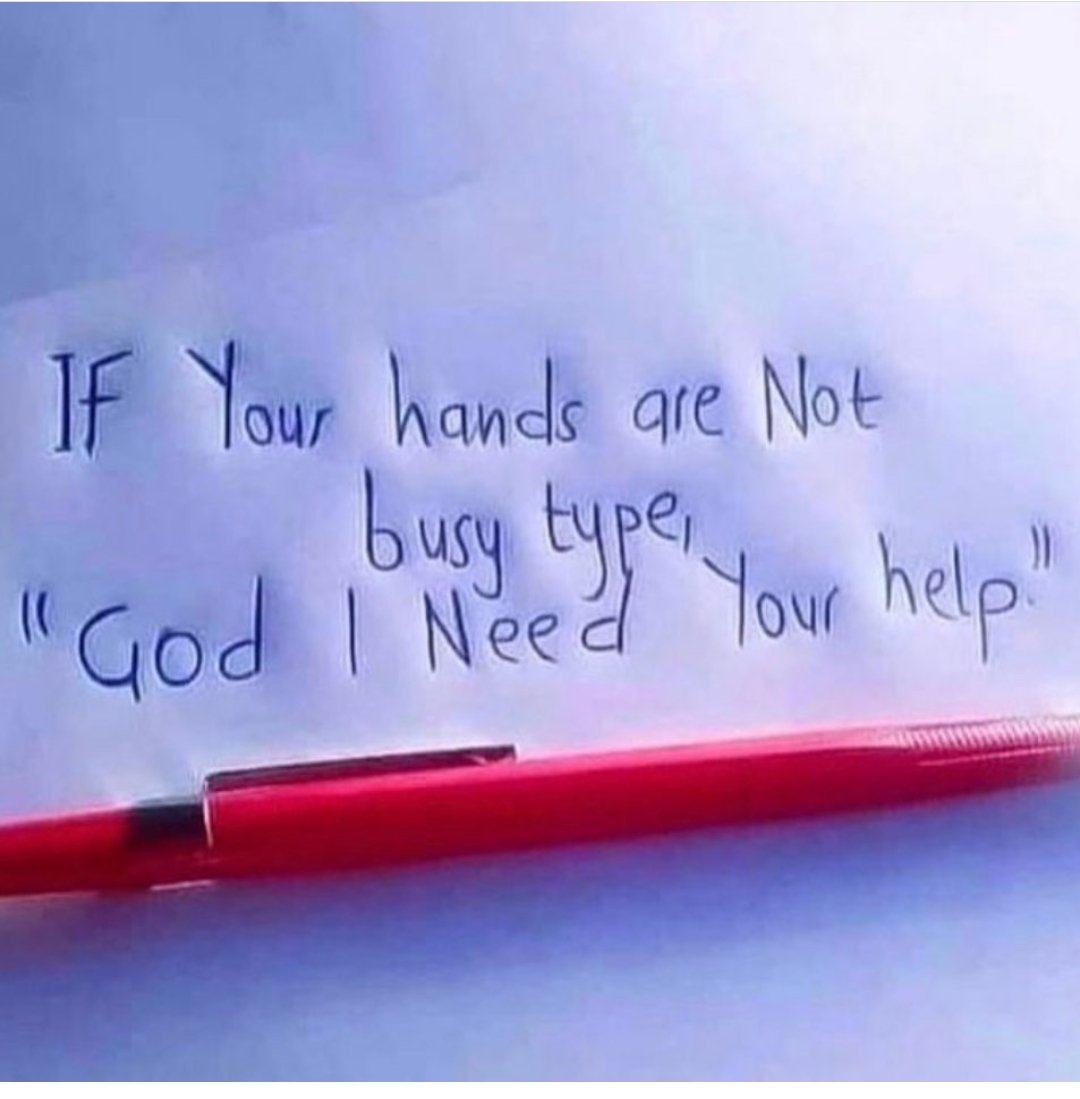 If Your hands are Not
busy type,
"God I Need Your help."